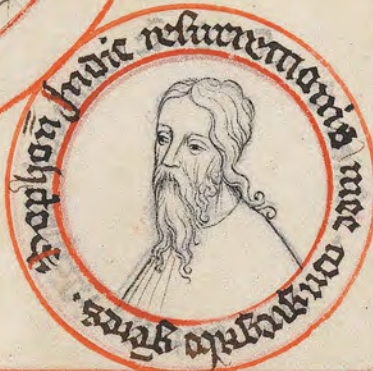 Sophon̄ Indie resurrectionis mee cōgregabo gētes.